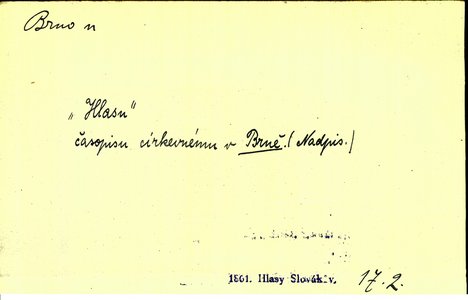 Brno n
„Hlasu"
časopisu církevnému v Brně. (Nadpis.)
1861. Hlasy Slovák. v. 17.2.